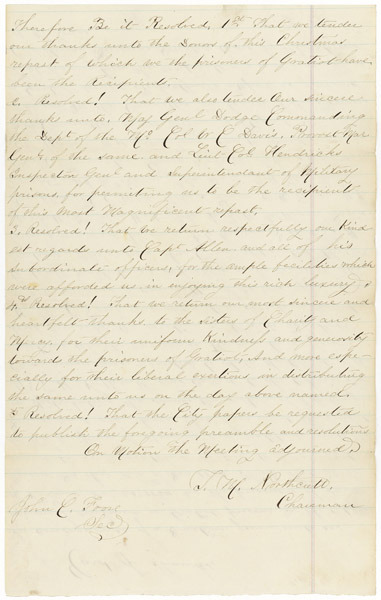 Therefore Be it Resolved, 1st That we tender
our thanks unto the Donors of this Christmas
repast of which we the prisoners of Gratiot have
been the Recipients.
2. Resolved! That we also tender Our Sincere
thanks unto, Maj Genl Dodge Commanding
the Dept of the Mo Col W E Davis, Provost Mar
Genl of the same and Lieut Col Hendricks
Inspector Genl and Superintendant of Military
prisons, for permiting us to be the recipient
of this Most Magnificent repast,
3, Resolved! That we return respectfully our Kind
est regards unto Capt Allen and all of his
Subordinate officers, for the ample facilities which
were afforded us in enjoying this rich luxury,
4th Resolved! That we return our most sincere and
heartfelt thanks to the Sisters of Charity and
Mercy, for their uniform Kindness and generosity
towards the prisoners of Gratiot, And more espe-
cially for their liberal exertions in distributing
the same unto us on the day above named.
5 Resolved! That the City papers be requested
to publish the foregoing preamble and resolutions
On Motion the Meeting adjourned,
T. M. Northcutt,
Chairman
John C.
Sec